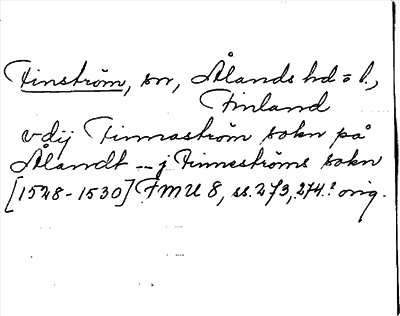 Finström, sn, Ålands hd o l.,
Finland
vdij Finnaström sokn på
Ålandt -- j Finneströms sokn
[1528-1530] FMU 8, ss. 273, 274. orig.